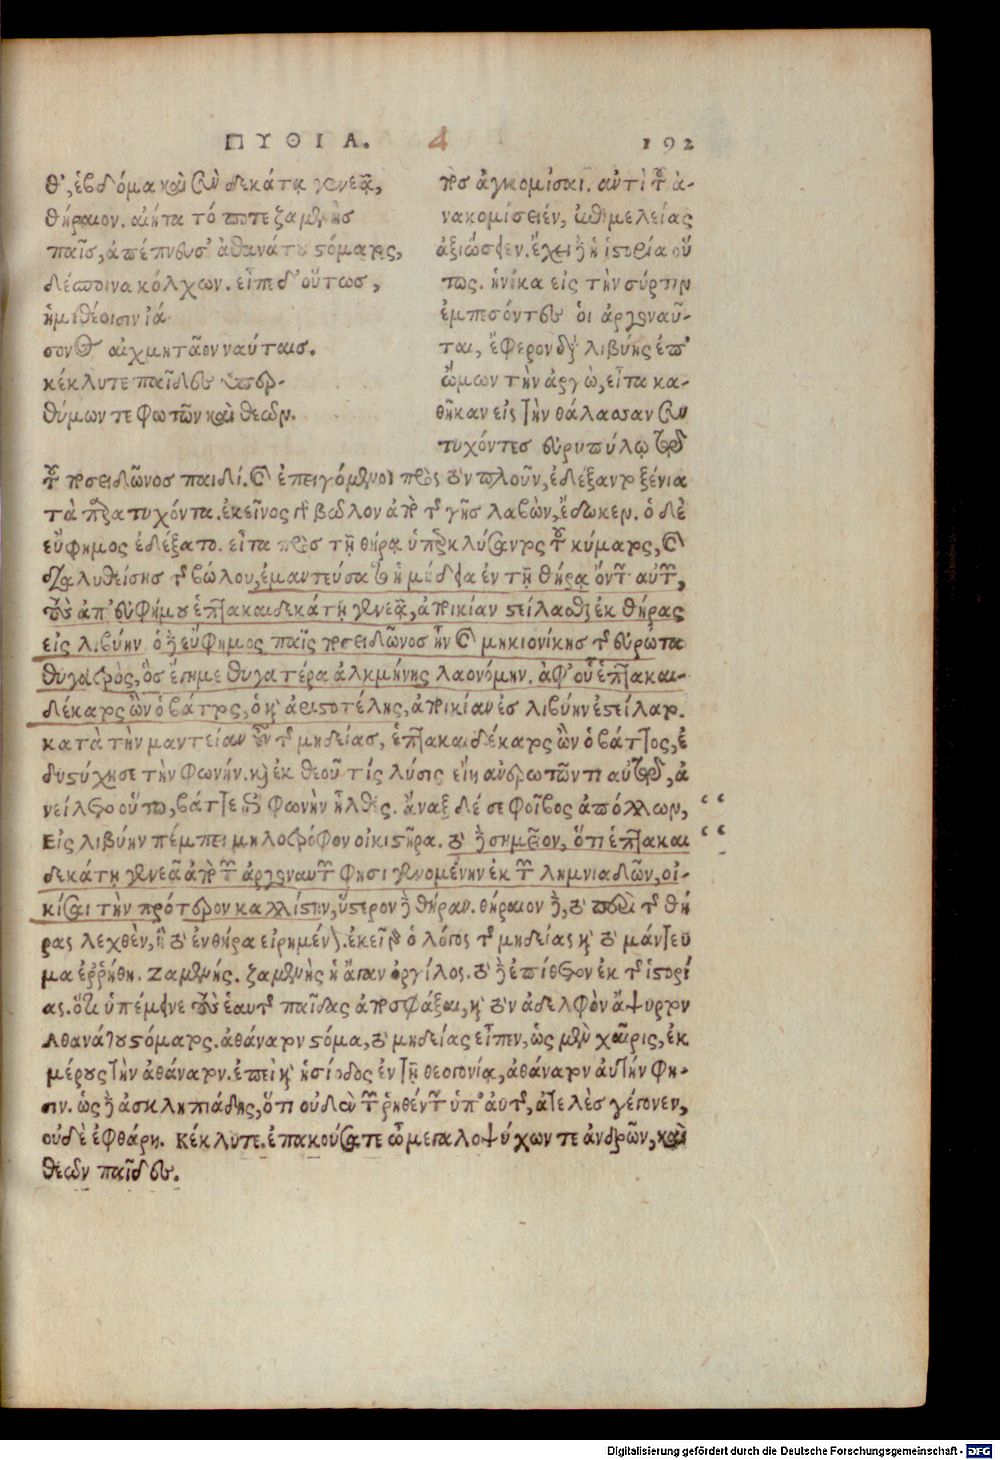 ΠΥΘΙΑ. 4 192
θ', ἑβδόμα καὶ σὺν δεκάτᾳ γενεᾷ,
θήραιον. αἰήτα τό ποτε ζαμενὴς
παῖς, ἀπέπνευσ' ἀθανάτου στόματος,
δέσποινα κόλχων. εἶπε δ' οὕτως,
ἡμιθέοισιν ἰά-
σονος αἰχμητᾶο ναύταις.
κέκλυτε παῖδες ὑπερ-
θύμων τε φωτῶν καὶ θεῶν.
τος ἀγκομίσαι. αὐτὶ τοῦ ἀ-
νακομίσειεν, ἐπιμελείας
ἀξιώσειεν. ἔχει δὲ ἡ ἱστορία οὕ
τως. ἡνίκα εἰς τὴν σύρτιν
ἐμπεσόντες οἱ ἀργοναῦ-
ται, ἔφερον διὰ λιβύης ἐπ'
ὤμων τὴν ἀργὼ, εἶτα κα-
θῆκαν εἰς τὴν θάλασσαν συν
τυχόντες εὐρυπύλῳ τῷ
τοῦ ποσειδῶνος παιδί. καὶ ἐπειγόμενοι πρὸς τὸν πλοῦν, ἐδέξαντο ξένια
τὰ παρατυχόντα. ἐκεῖνος γὰρ βῶλον ἀπὸ τῆς γῆς λαβὼν, ἔδωκεν. ὁ δὲ
εὔφημος ἐδέξατο. εἶτα πρὸς τῇ θήρᾳ ὑπερκλύσαντος τοῦ κύματος, καὶ
διαλυθείσης τῆς βώλου, ἐμαντεύσατο ἡ μήδεια ἐν τῇ θήρᾳ ὄντων αὐτῶν,
τοὺς ἀπ' εὐφήμου ἑπτακαιδεκάτῃ γενεᾷ, ἀποικίαν στείλασθαι ἐκ θήρας
εἰς λιβύην. ὁ δὲ εὔφημος παῖς ποσειδῶνος ἦν καὶ μηκιονίκης τῆς εὐρώτα
θυγατρὸς, ὃς ἔγημε θυγατέρα ἀλκμήνης λαονόμην. ἀφ' οὗ ἑπτακαι-
δέκατος ὢν ὁ βάττος, ὁ καὶ ἀριστοτέλης, ἀποικίαν ἐς λιβύην ἐστείλατο.
κατὰ τὴν μαντείαν οὖν τῆς μηδείας, ἑπτακαιδέκατος ὢν ὁ βάττος, ἐ
δυστύχησε τὴν φωνήν. καὶ ἐκ θεοῦ τίς λύσις εἴη ἀνερωτῶντι αὐτῷ, ἀ
νεῖλεν οὕτω, βάττε ἐπὶ φωνὴν ἦλθες. ἄναξ δέ σε φοῖβος ἀπόλλων,
Εἰς λιβύην πέμπει μηλοτρόφον οἰκιστῆρα. τὸ δὲ σημεῖον, ὅτι ἑπτακαι
δεκάτῃ γενεᾷ ἀπὸ τῶν ἀργοναυτῶν φησι γενομένην ἐκ τῶν λημνιαδῶν, οἰ-
κίσαι τὴν πρότερον καλλίστην, ὕστερον δὲ θήραν. θήραιον δὲ, τὸ περὶ τῆς θή
ρας λεχθὲν, ἢ τὸ ἐν θήρᾳ εἰρημένον. ἐκεῖ γὰρ ὁ λόγος τῆς μηδείας καὶ τὸ μάντευ
μα ἐῤῥήθη. Ζαμενής. ζαμενὴς ἡ ἄγαν ὀργίλος. τὸ δὲ ἐπίθετον ἐκ τῆς ἱστορί
ας. ὅτι ὑπέμεινε τοὺς ἑαυτῆς παῖδας ἀποσφάξαι, καὶ τὸν ἀδελφὸν ἄψυρτον
Αθανάτου στόματος. ἀθάνατον στόμα, τὸ μηδείας εἶπεν, ὡς μὲν χαῖρις, ἐκ
μέρους τὴν ἀθάνατον. ἐπεὶ καὶ ἡσίοδος ἐν τῇ θεογονίᾳ, ἀθάνατον αὐτήν φη-
σιν. ὡς δὲ ἀσκληπιάδης, ὅτι οὐδὲν τῶν ῥηθέντων ὑπ' αὐτῆς, ἀτελὲς γέγονεν,
οὐδὲ ἐφθάρη. Κέκλυτε. ἐπακούσατε ὦ μεγαλοψύχων τε ἀνδρῶν, καὶ
θεῶν παῖδες.
Digitalisierung gefördert durch die Deutsche Forschungsgemeinschaft - DFG